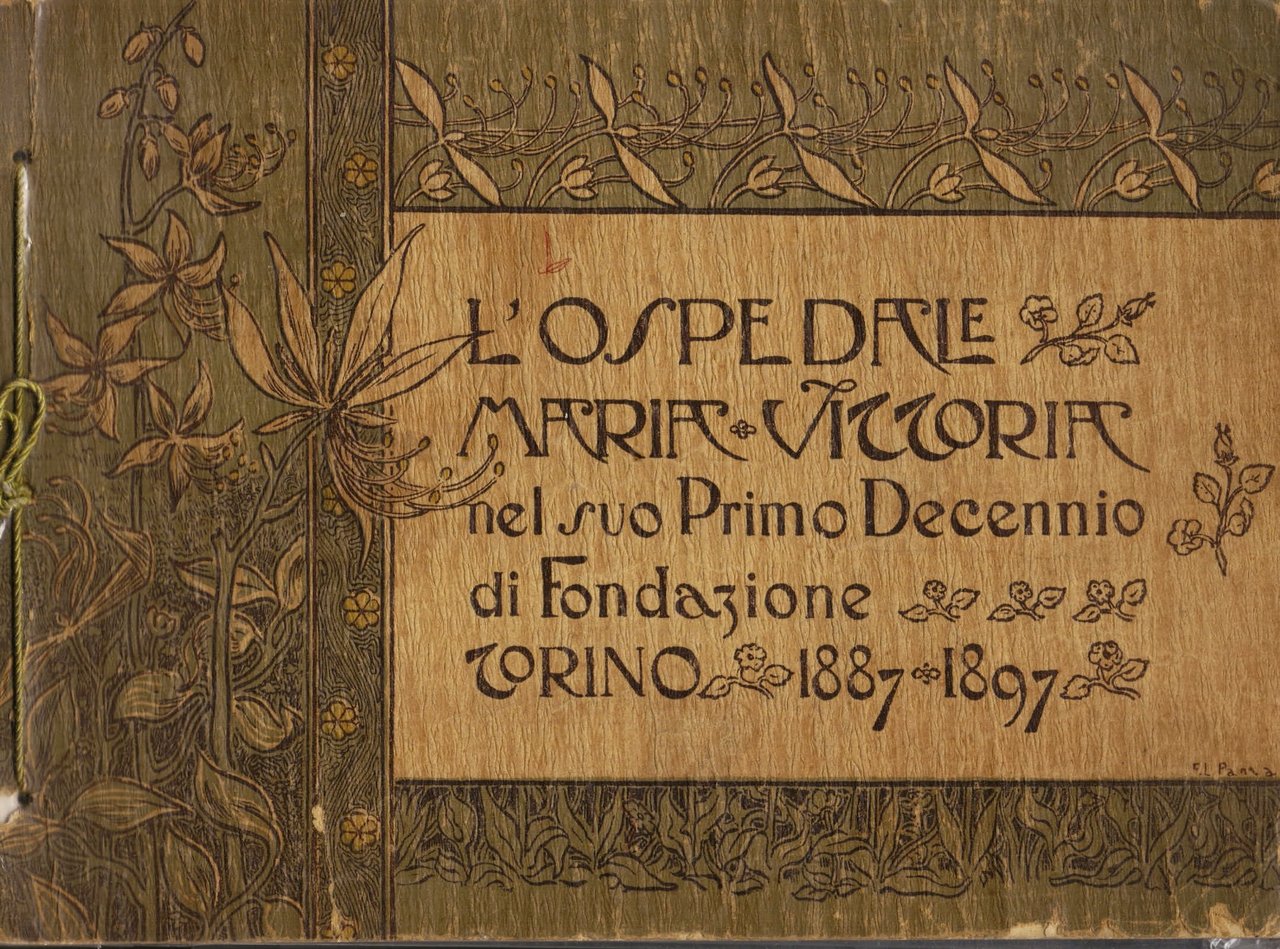 L'OSPEDALE
MARIA VITTORIA
nel suo Primo Decennio
di Fondazione
TORINO 1887 1897